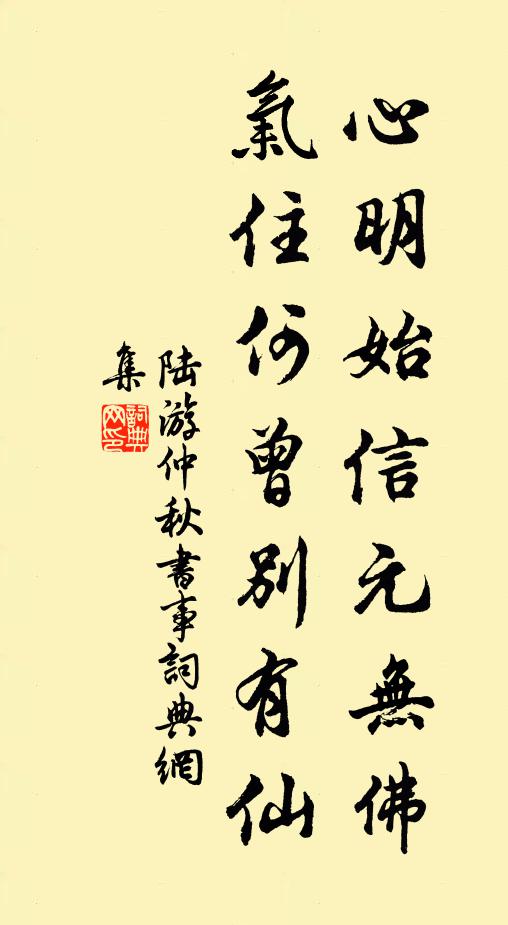 心明始信元無佛
氣住何曾別有仙
陸游仲秋書事詞典網
集
詞典网印